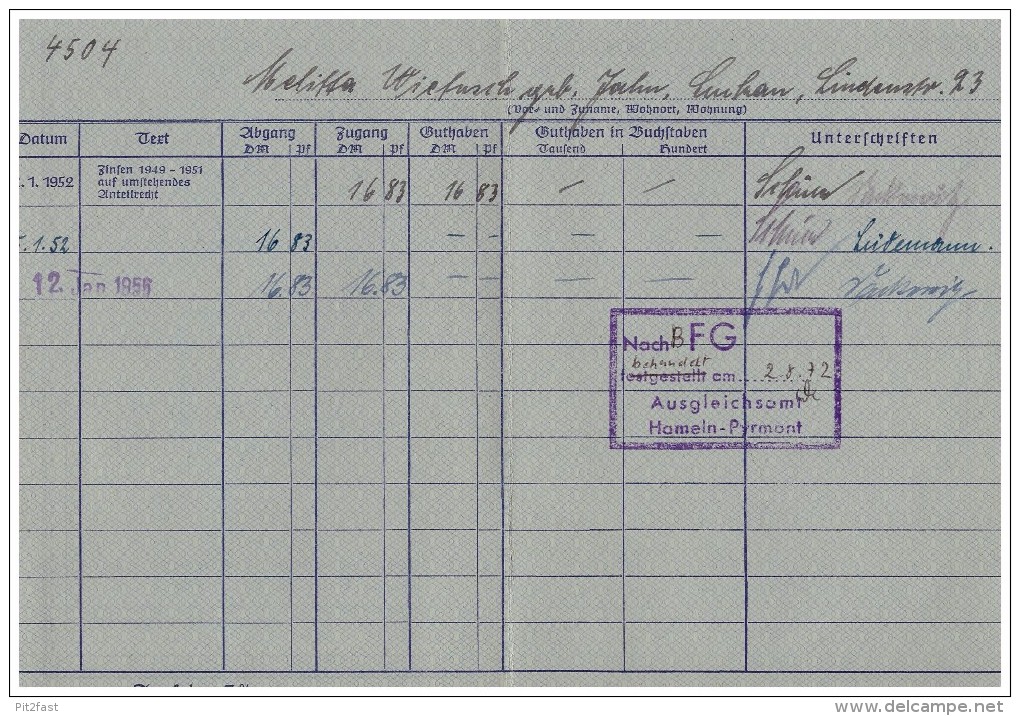 4504
Melitta Wietusch geb. Jahn, Luckau, Lindenstr. 23
(Vor- und Zuname, Wohnort, Wohnung)
Datum Text Abgang Zugang Guthaben Guthaben in Buchstaben Unterschriften
DM Pf DM Pf DM Pf Tausend Hundert
.1.1952 Zinsen 1949 - 1951 auf umstehendes Anteilrecht 16 83 16 83 — —
.1.52 16 83 — — — — Lüdemann.
12. Jan 1956 16.83 16.83 — — — —
Nach B FG
behandelt
festgestellt am 2.8.72
Ausgleichsamt
Hameln-Pyrmont
Pit2fast
www.delcampe.net